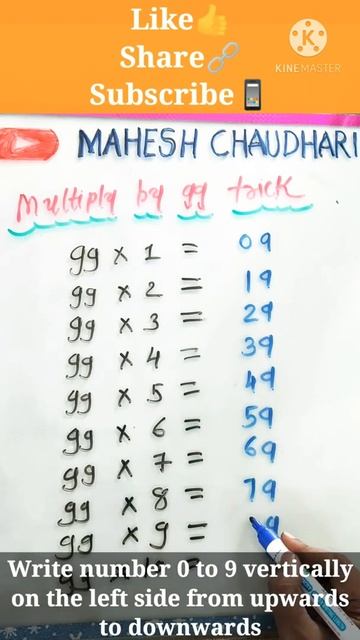 Like👍
Share🔗
Subscribe📱
KINEMASTER
MAHESH CHAUDHARI
Multiply by 99 trick
99 × 1 = 09
99 × 2 = 19
99 × 3 = 29
99 × 4 = 39
99 × 5 = 49
99 × 6 = 59
99 × 7 = 69
99 × 8 = 79
99 × 9 = 9
Write number 0 to 9 vertically
on the left side from upwards
to downwards